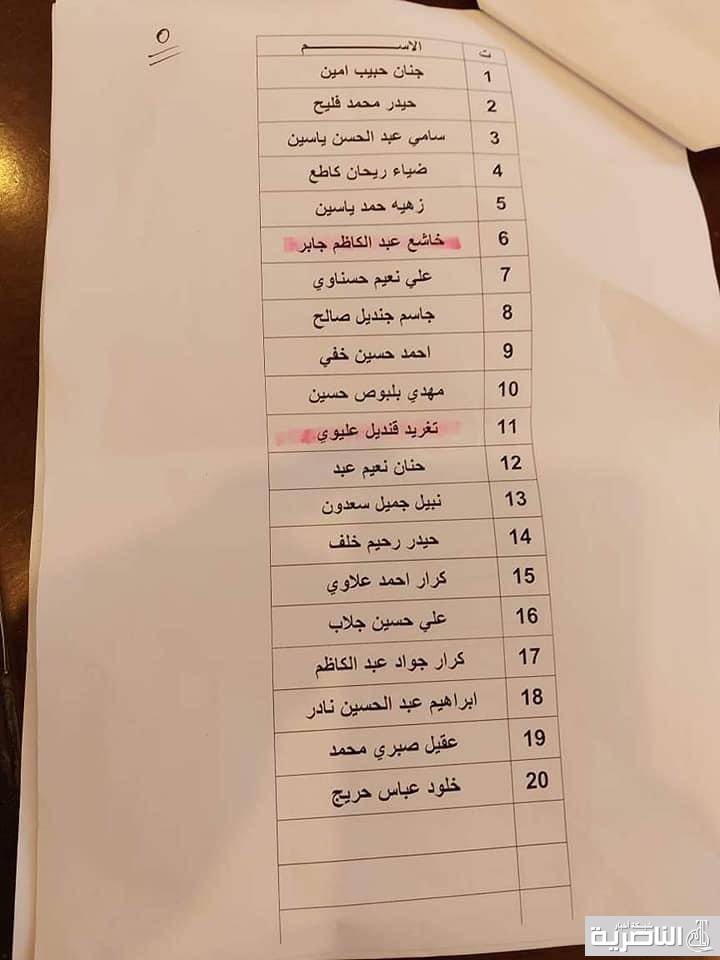 ٥
ت الاســـــــــــم
1 جنان حبيب امين
2 حيدر محمد فليح
3 سامي عبد الحسن ياسين
4 ضياء ريحان كاطع
5 زهيه حمد ياسين
6 خاشع عبد الكاظم جابر
7 علي نعيم حسناوي
8 جاسم جنديل صالح
9 احمد حسين خفي
10 مهدي بلبوص حسين
11 تغريد قنديل عليوي
12 حنان نعيم عبد
13 نبيل جميل سعدون
14 حيدر رحيم خلف
15 كرار احمد علاوي
16 علي حسين جلاب
17 كرار جواد عبد الكاظم
18 ابراهيم عبد الحسين نادر
19 عقيل صبري محمد
20 خلود عباس حريج
شبكة اخبار
الناصرية